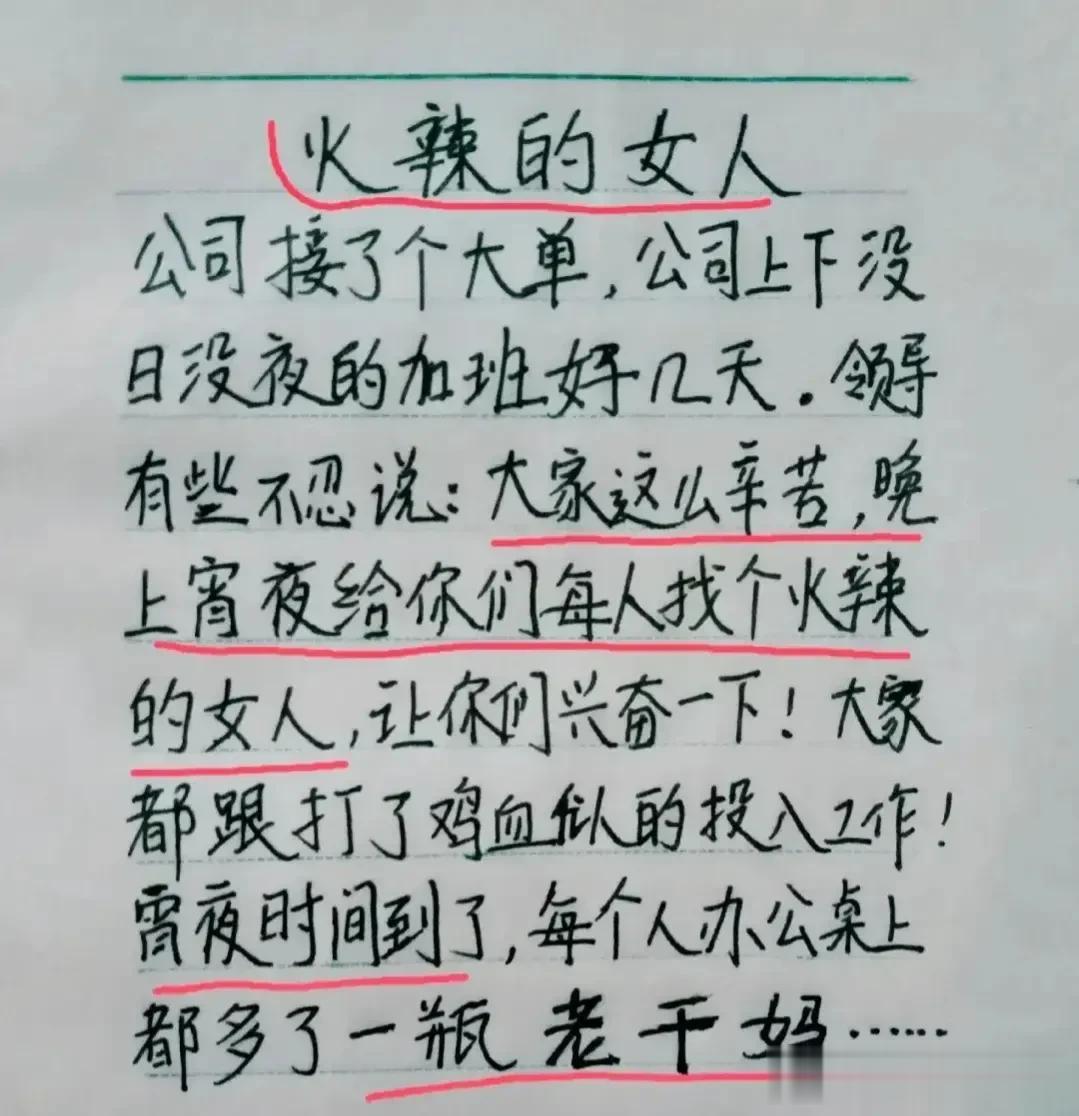 火辣的女人
公司接了个大单,公司上下没
日没夜的加班好几天.领导
有些不忍说:大家这么辛苦,晚
上宵夜给你们每人找个火辣
的女人,让你们兴奋一下!大家
都跟打了鸡血似的投入工作!
宵夜时间到了,每个人办公桌上
都多了一瓶老干妈……